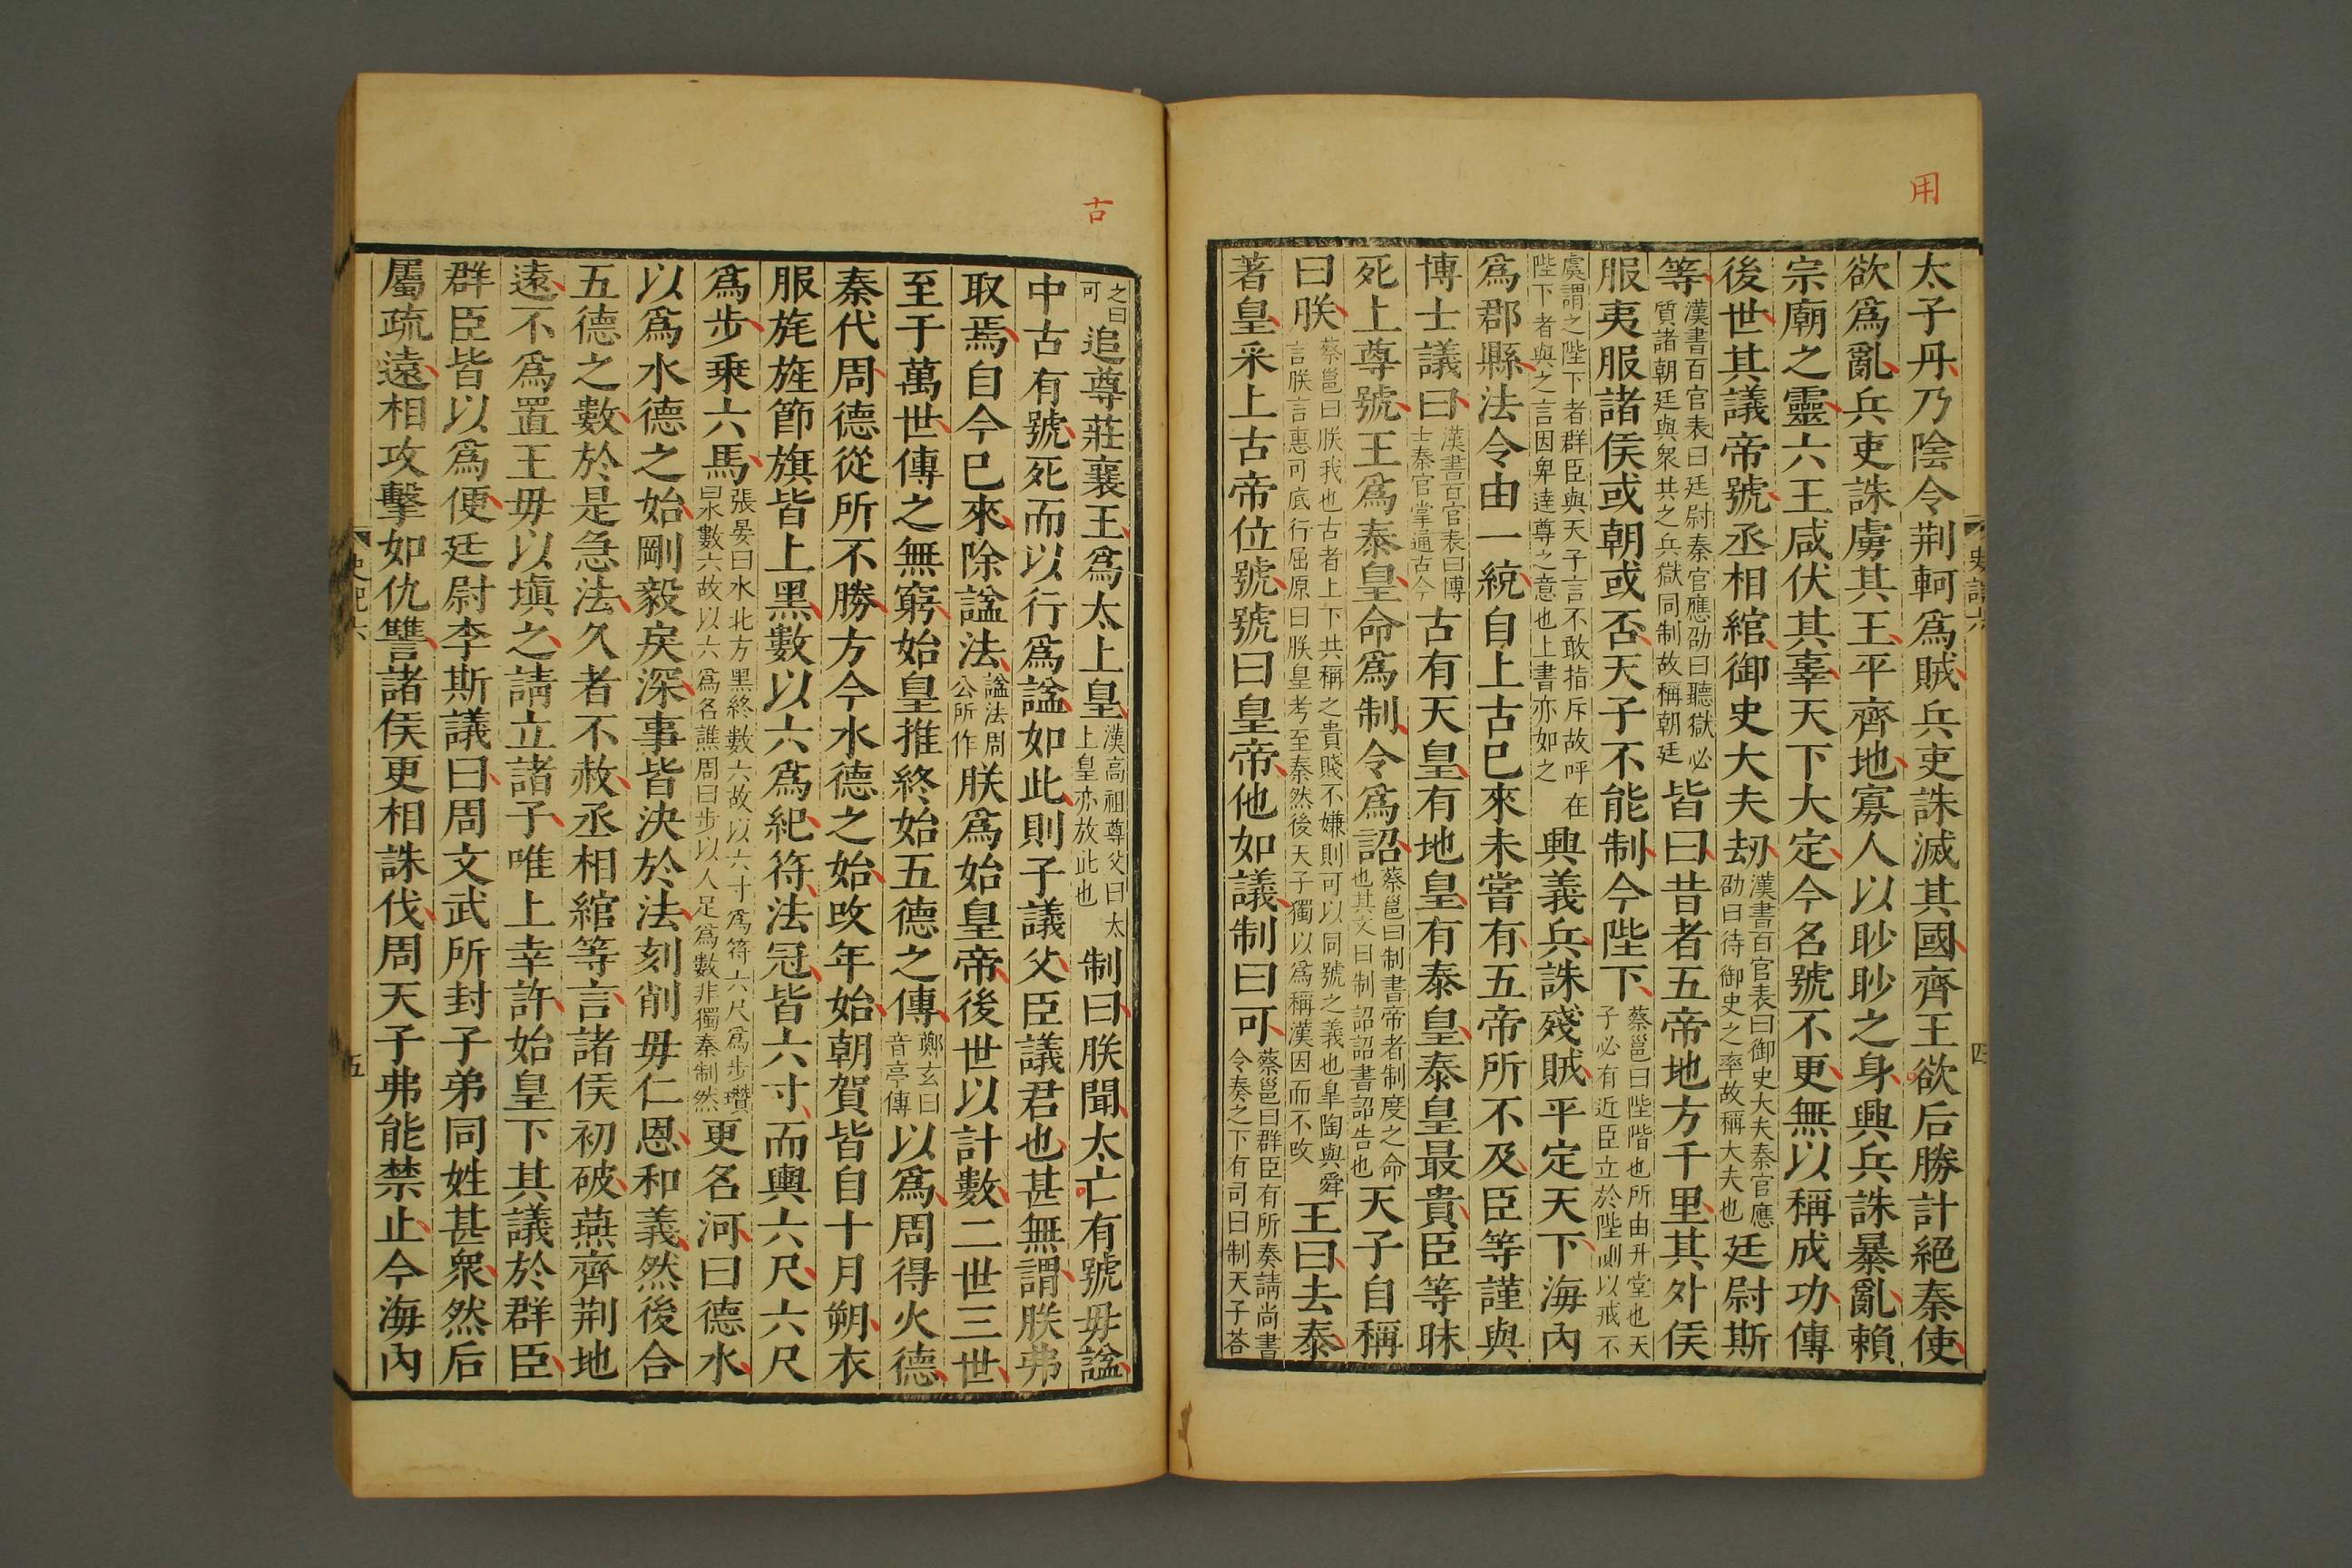 用
太子丹乃陰令荆軻爲賊兵吏誅滅其國齊王欲后勝計絕秦使
欲爲亂兵吏誅虜其王平齊地寡人以眇眇之身興兵誅暴亂賴
宗廟之靈六王咸伏其辜天下大定今名號不更無以稱成功傳
後世其議帝號丞相綰御史大夫劫漢書百官表曰御史大夫秦官應劭曰待御史之率故稱大夫也廷尉斯
等漢書百官表曰廷尉秦官應劭曰聽獄必質諸朝廷與衆共之兵獄同制故稱朝廷皆曰昔者五帝地方千里其外侯
服夷服諸侯或朝或否天子不能制今陛下蔡邕曰陛階也所由升堂也天子必有近臣立於陛側以戒不
虞謂之陛下者群臣與天子言不敢指斥故呼在陛下者與之言因卑達尊之意也上書亦如之興義兵誅殘賊平定天下海內
爲郡縣法令由一統自上古已來未嘗有五帝所不及臣等謹與
博士議曰漢書百官表曰博士秦官掌通古今古有天皇有地皇有泰皇泰皇最貴臣等昧
死上尊號王爲泰皇命爲制令爲詔蔡邕曰制書帝者制度之命也其文曰制詔詔書詔告也天子自稱
曰朕蔡邕曰朕我也古者上下共稱之貴賤不嫌則可以同號之義也皐陶與舜言朕言惠可底行屈原曰朕皇考至秦然後天子獨以爲稱漢因而不改王曰去泰
著皇采上古帝位號號曰皇帝他如議制曰可蔡邕曰群臣有所奏請尚書令奏之下有司曰制天子荅
史記六
四
古
之曰可追尊莊襄王爲太上皇漢高祖尊父曰太上皇亦放此也制曰朕聞太亡有號毋諡
中古有號死而以行爲諡如此則子議父臣議君也甚無謂朕弗
取焉自今已來除諡法諡法周公所作朕爲始皇帝後世以計數二世三世
至于萬世傳之無窮始皇推終始五德之傳鄭玄曰音亭傳以爲周得火德
秦代周德從所不勝方今水德之始改年始朝賀皆自十月朔衣
服旄旌節旗皆上黑數以六爲紀符法冠皆六寸而輿六尺六尺
爲步乗六馬張晏曰水北方黑終數六故以六寸爲符六尺爲步瓚曰水數六故以六爲名譙周曰步以人足爲數非獨秦制然更名河曰德水
以爲水德之始剛毅戾深事皆決於法刻削毋仁恩和義然後合
五德之數於是急法久者不赦丞相綰等言諸侯初破燕齊荆地
遠不爲置王毋以塡之請立諸子唯上幸許始皇下其議於群臣
群臣皆以爲便廷尉李斯議曰周文武所封子弟同姓甚衆然后
屬疏遠相攻擊如仇讐諸侯更相誅伐周天子弗能禁止今海內
史記六
五